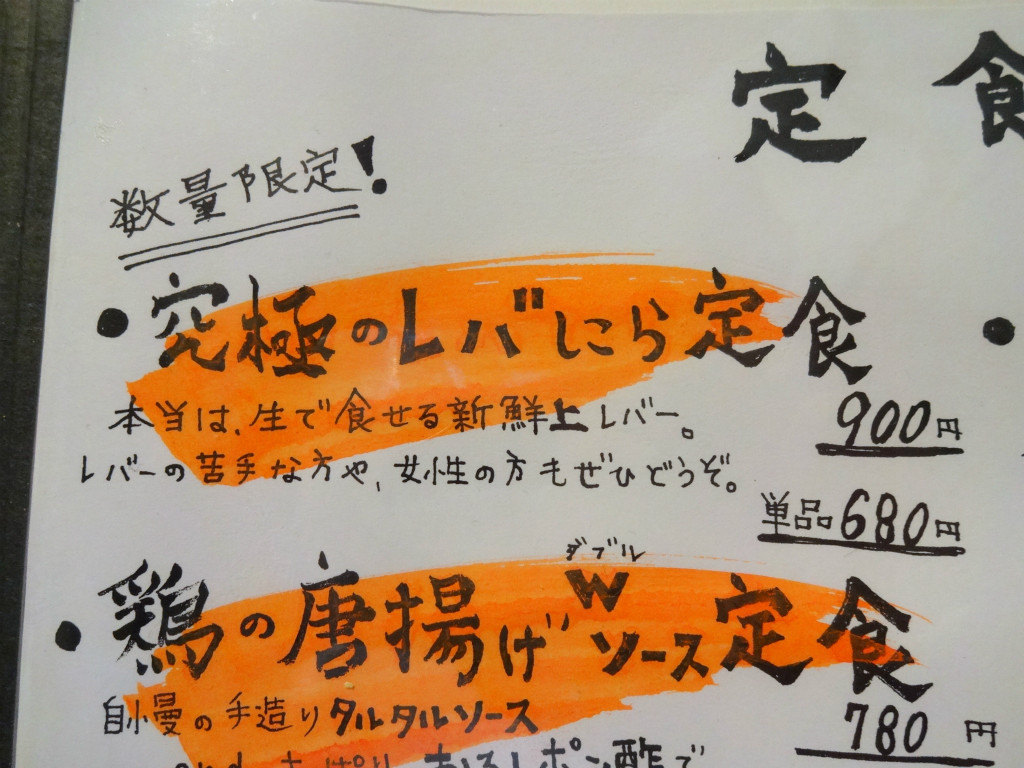 定食
数量限定!
・究極のレバにら定食
本当は、生で食せる新鮮上レバー。
900円
レバーの苦手な方や、女性の方もぜひどうぞ。
単品680円
ダブル
・鶏の唐揚げWソース定食
自慢の手造りタルタルソース
780円
and さっぱり おろしポン酢で